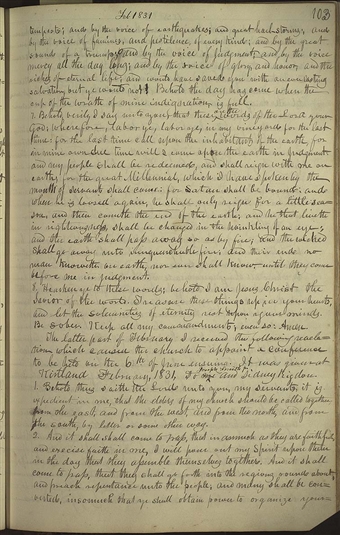 Feb 1831
103
tempests; and by the voice of earthquakes; and great hail-storms, and
by the voice of famines, and pestilence, of every kind; and by the great
sound of a trump; and by the voice of judgment; and by the voice
mercy all the day long; and by the voice of glory, and honor, and the
riches of eternal life; and would have saved you with an everlasting
salvation but ye would not! Behold the day has come when the
cup of the wrath of mine indignation, is full.
7. Behold, verily I say unto you, that these are the words of the Lord your
God; wherefore, labor ye, labor ye, in my vineyard for the last
time: for the last time call upon the inhabitants of the earth, for
in mine own due time will I come upon the earth in judgment
and my people shall be redeemed, and shall reign with me on
earth; for the great Millennial, which I have spoken by the
mouth of servants shall come: for satan shall be bound; and
when he is loosed again, he shall only reign for a little sea-
son, and then cometh the end of the earth; and he that liveth
in righteousness, shall be changed in the twinkling of an eye;
and the earth shall pass away so as by fire; and the wicked
shall go away into unquenchable fire; and their end no
man knoweth on earth, nor ever shall know, until they come
before me in judgment.
8. Hearken ye to these words; behold I am Jesus Christ the
Savior of the world. Treasure these things up in your hearts,
and let the solemnities of eternity rest upon your minds.
Be sober. Keep all my commandments; even so: Amen.
The latter part of February I received the following revela-
tion which caused the church to appoint a conference
to be held on the 6th of June ensuing. It was given at
Kirtland February, 1831. To Sidney Rigdon.
1. Behold thus saith the Lord unto you, my servants, it is
expedient in me, that the elders of my church should be called together,
from the east, and from the west, and from the north, and from
the south, by letter or some other way.
2. And it shall come to pass, that inasmuch as they are faithful,
and exercise faith in me, I will pour out my Spirit upon them
in the day that they assemble themselves together. And it shall
come to pass, that they shall go forth into the regions round about,
and preach repentance unto the people; and many shall be con-
verted, insomuch that ye shall obtain power to organize your-